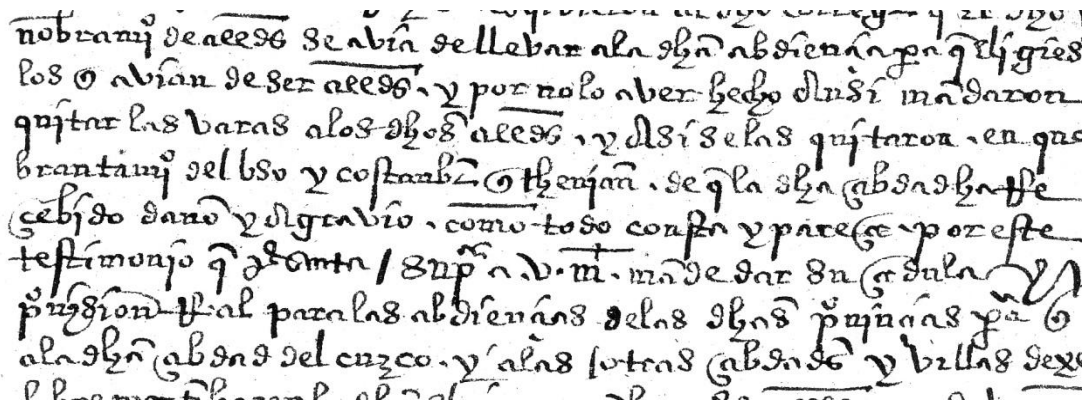 nobrami° de alcds se avia de llevar ala dha abdiençia pa q eligiese
los q avian de ser alcds. y por no lo aver hecho Ansi mãdaron
quitar las varas alos dhos alcds. y Asi se las quitaron. en que
brantami° del vso y costanbr̃ q thenian. de q la dha çibdad ha Re
çebido daño y Agravio. como todo consta y pareçe. por este
testimonio q pSenta / Supca a .v.m. mãde dar su çedula y
pvision Real para las abdiençias delas dhas pvinçias pa q
ala dha çibdad del cuzco. y alas otras çibdads y villas dexe